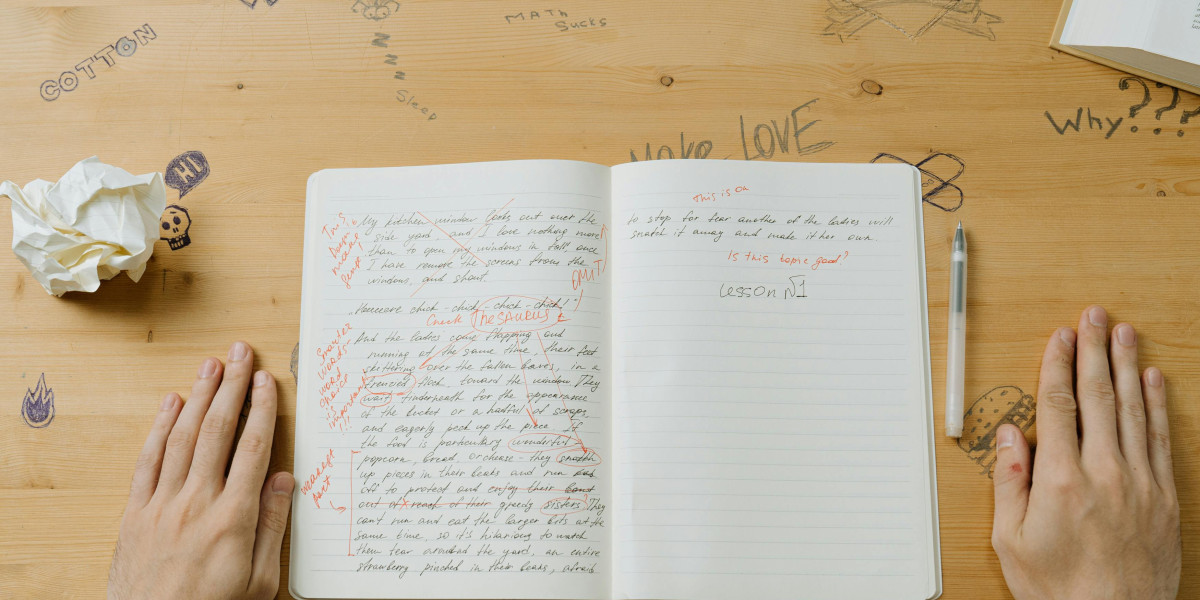 COTTON
MATH
Sucks
Z
Z
Z
Z
Sleep
Why???
Make LOVE
HI
This
part
make
sense!
My kitchen window looks out over the
side yard, and I love nothing more
than to open my windows in fall, once
I have remove the screens from the
windows, and shout.
OMIT
Heeeeere chick-chick-chick-chick!
Check THESAURUS
Smarter
words-
word
choice
important
!!!
And the ladies come flapping and
running at the same time, their feet
skittering over the fallen leaves, in a
frenzied flock, toward the window. They
wait underneath for the appearance
of the bucket or a handful of scraps,
and eagerly peck up the piece. If
the food is particulary wonderful-
popcorn, bread, or cheese - they snatch
up pieces in their beaks and run
off to protect and enjoy their
out of reach of their greedy sisters. They
can't run and eat the larger bits at the
same time, so it's hilarious to watch
them tear around the yard, an entire
strawberry pinched in their beaks, afraid
weakest
part
this is a
to stop for fear another of the ladies will
snatch it away and make it her own.
Is this topic good?
Lesson №1